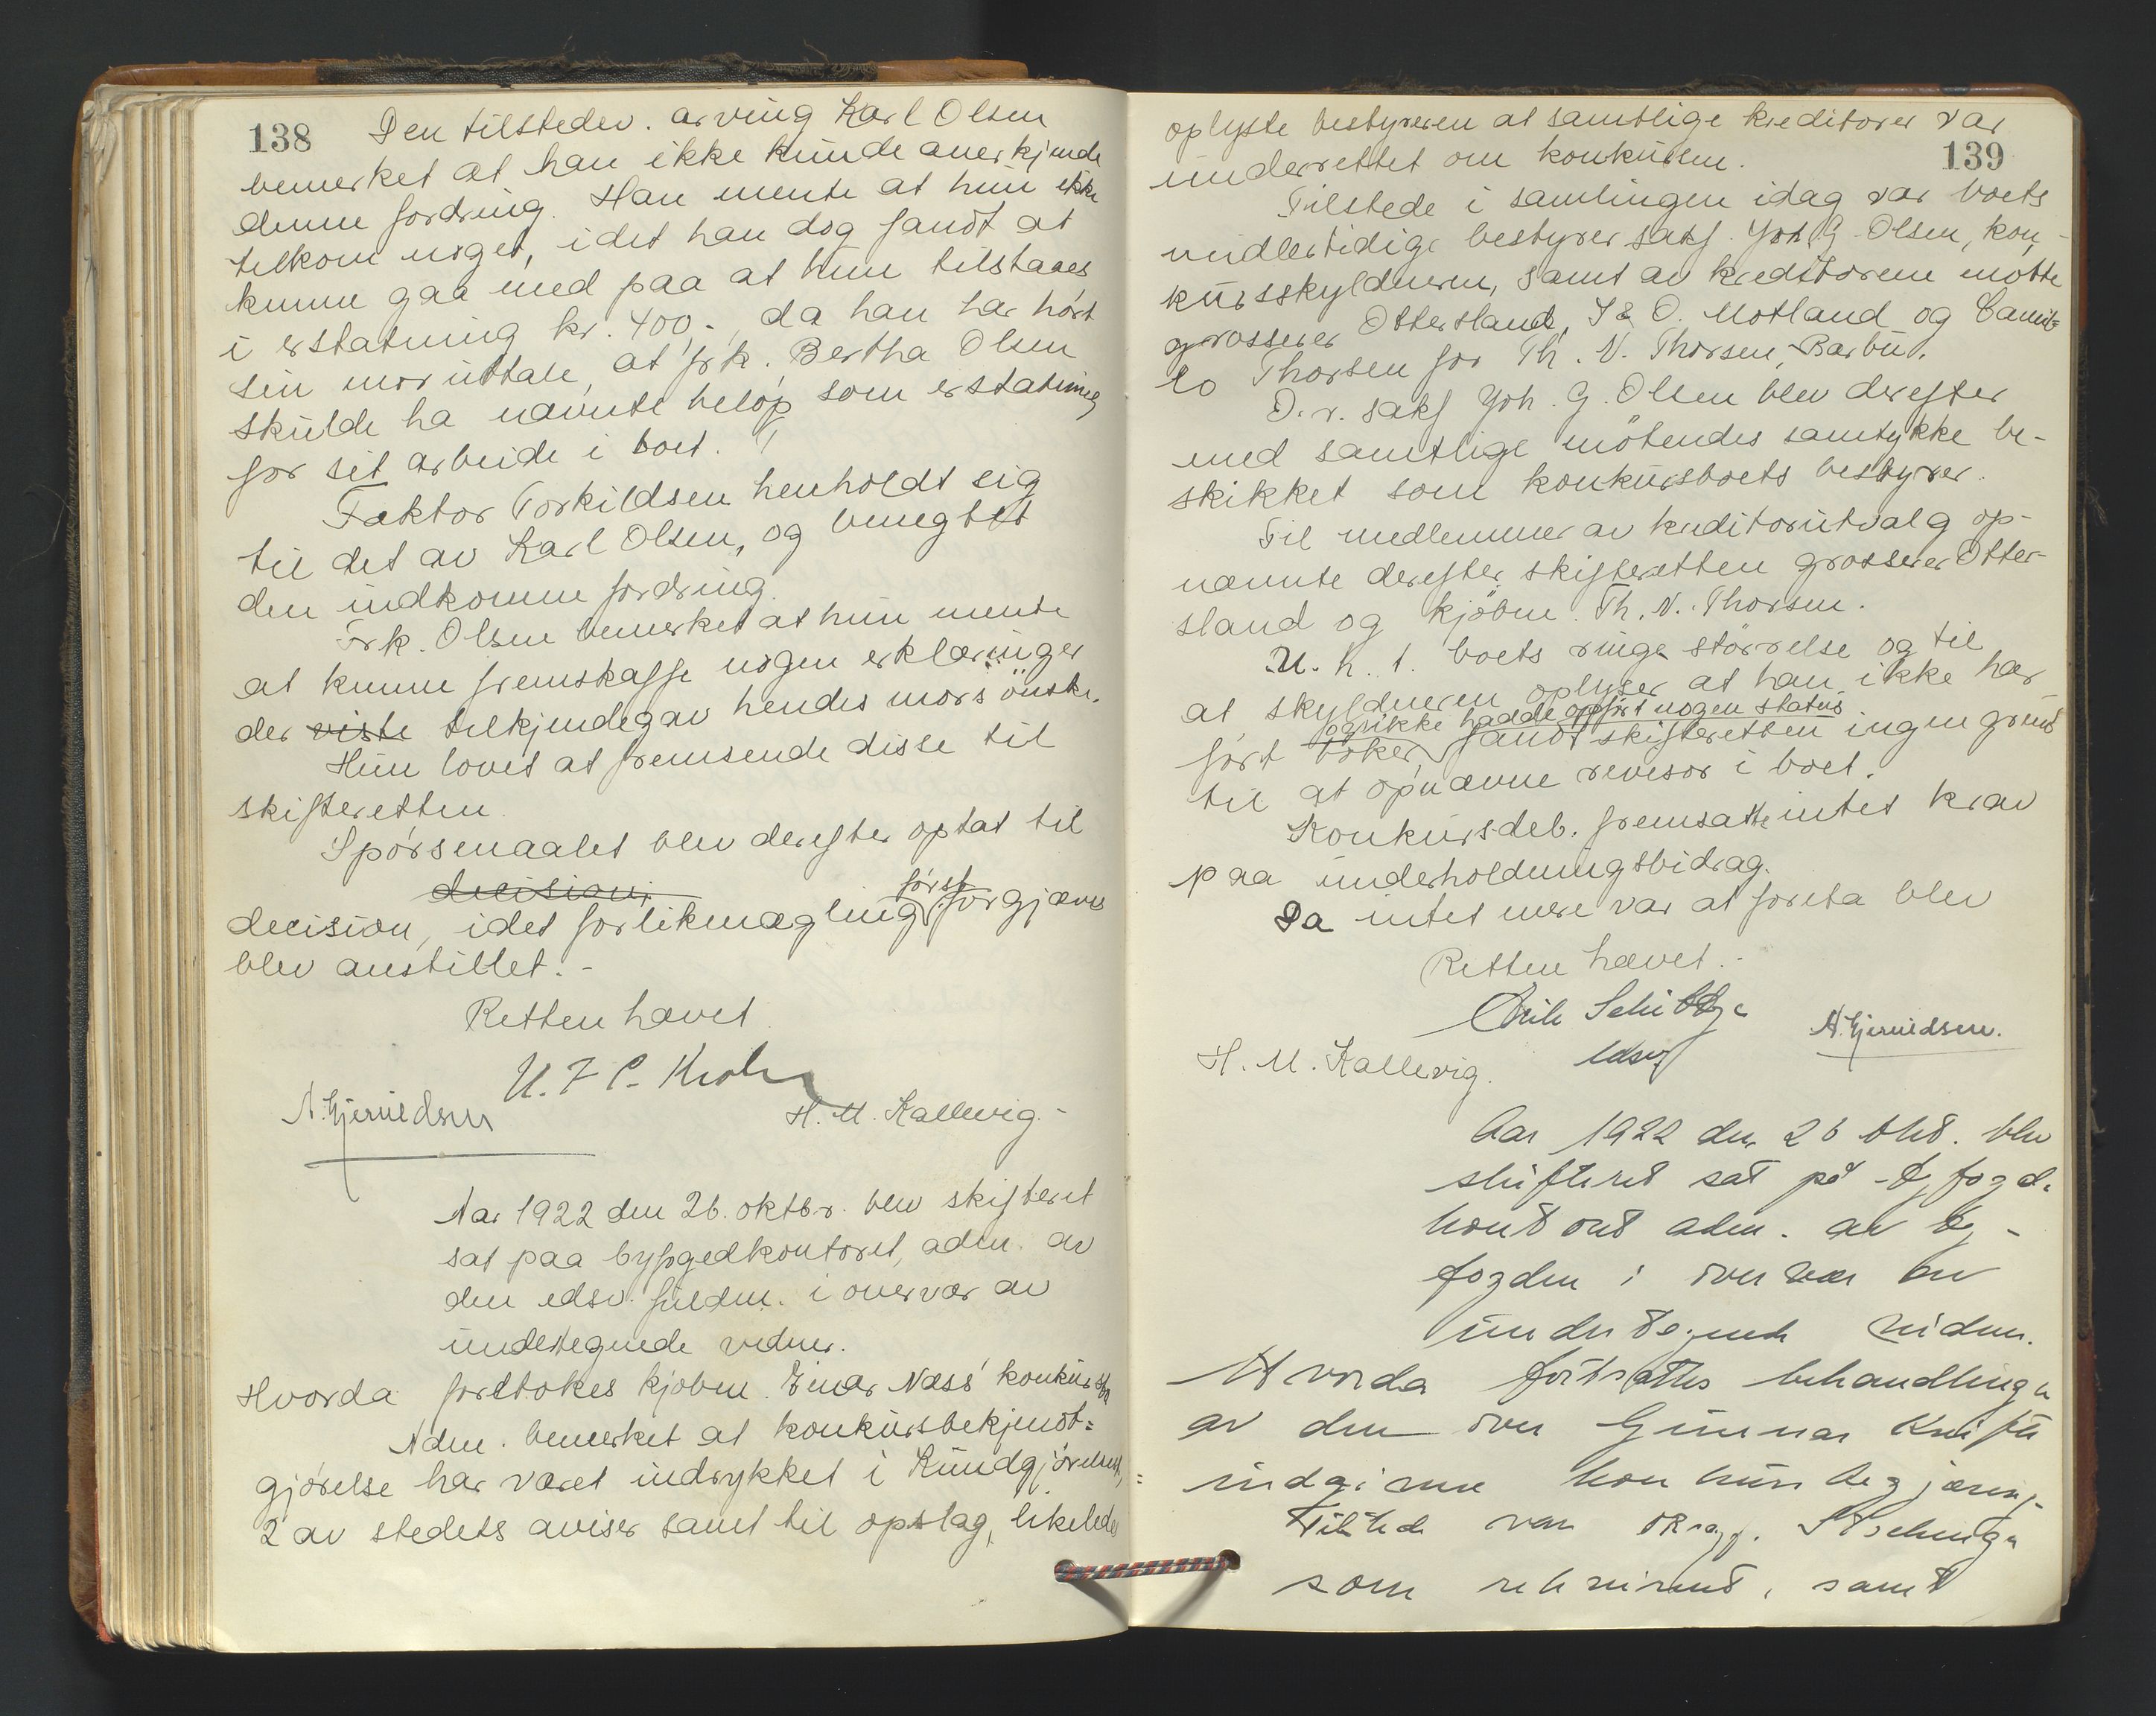 138
Den tilstedev. arving Karl Olsen
bemerket at han ikke kunde anerkjende
denne fordring. Han mente at hun ikke
tilkom noget, idet han dog fandt at
kunne gaa med paa at hun tilstaaes
i erstatning kr. 400,- da han har hørt
sin mor uttale, at frk. Bertha Olsen
skulde ha nævnte beløp som erstatning
for sit arbeide i boet.
Faktor Torkildsen henholdt sig
til det av Karl Olsen, og benegtet
den indkomne fordring.
Frk. Olsen bemerket at hun mente
at kunne fremskaffe nogen erklæringer
der viste tilkjendegav hendes mors ønske.
Hun lovet at fremsende disse til
skifteretten.
Spørsmaalet blev derefter optat til
decision
decision, idet forlikmægling først forgjæves
blev anstillet. -
Retten hævet
U. F. C. Krohn
A. Gjeruldsen
H. M. Kallevig. -
Aar 1922 den 26. oktbr. blev skifteret
sat paa byfogedkontoret, adm. av
den edsv. fuldm. i overvær av
undertegnede vidner.
Hvorda foretokes kjøbm. Einar Næss' konkursbo
Adm. bemerket at konkursbekjendt=
gjørelse har været indrykket i Kundgjørelsest,
2 av stedets aviser samt til opslag, likeledes
139
oplyste bestyreren at samtlige kreditorer var
underrettet om konkursen.
Tilstede i samlingen idag var boets
midlertidige bestyrer sakf. Joh. G. Olsen, kon-
kursskyldneren, samt av kreditorene møtte
grosserer Ottersland, I & O. Motland og Camil=
lo Thorsen for Th. N. Thorsen, Barbu.
O.r. sakf Joh. G. Olsen blev derefter
med samtlige møtendes samtykke be-
skikket som konkursboets bestyrer.
Til medlemmer av kreditorutvalg op-
nævnte derefter skifteretten grosserer Otter-
sland og kjøbm. Th. N. Thorsen.
U. h. t. boets ringe størrelse og til
at skyldneren oplyser at han ikke har
og ikke hadde opført nogen status
ført bøker, fandt skifteretten ingen grund
til at opnævne revisor i boet.
Konkursdeb. fremsatte intet krav
paa underholdningsbidrag.
Da intet mere var at foreta blev
Retten hævet. -
A. Gjeruldsen.
H. M. Kallevig.
edsv
Aar 1922 den 26 okt. blev
skifteret sat på byfogd-
kontoret adm. av by-
fogden i overvær av
undertegnede vidner.
Hvorda fortsattes behandlingen
av den over Gunnar
indgivne konkursbegjæring.
Tilstede var
som rekvirent, samt